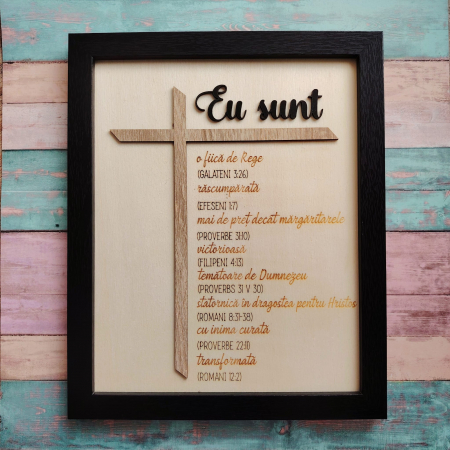 Eu sunt
o fiică de Rege
(GALATENI 3:26)
răscumpărată
(EFESENI 1:7)
mai de preț decât mărgăritarele
(PROVERBE 31:10)
victorioasă
(FILIPENI 4:13)
temătoare de Dumnezeu
(PROVERBS 31 V 30)
statornică în dragostea pentru Hristos
(ROMANI 8:31-38)
cu inima curată
(PROVERBE 22:11)
transformată
(ROMANI 12:2)